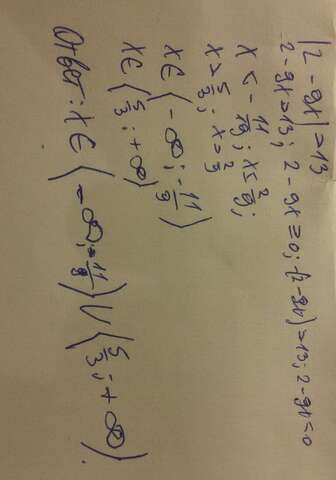 |2 - 9x| = 13
2 - 9x = 13; 2 - 9x ≥ 0; -(2 - 9x) = 13; 2 - 9x = 0
x < - 11/9; x ≤ 2/9;
x > 5/3; x > 2/9
x ∈ (- ∞; - 11/9)
x ∈ (5/3; + ∞)
Ответ: x ∈ (- ∞; - 11/9) ∪ (5/3; + ∞).